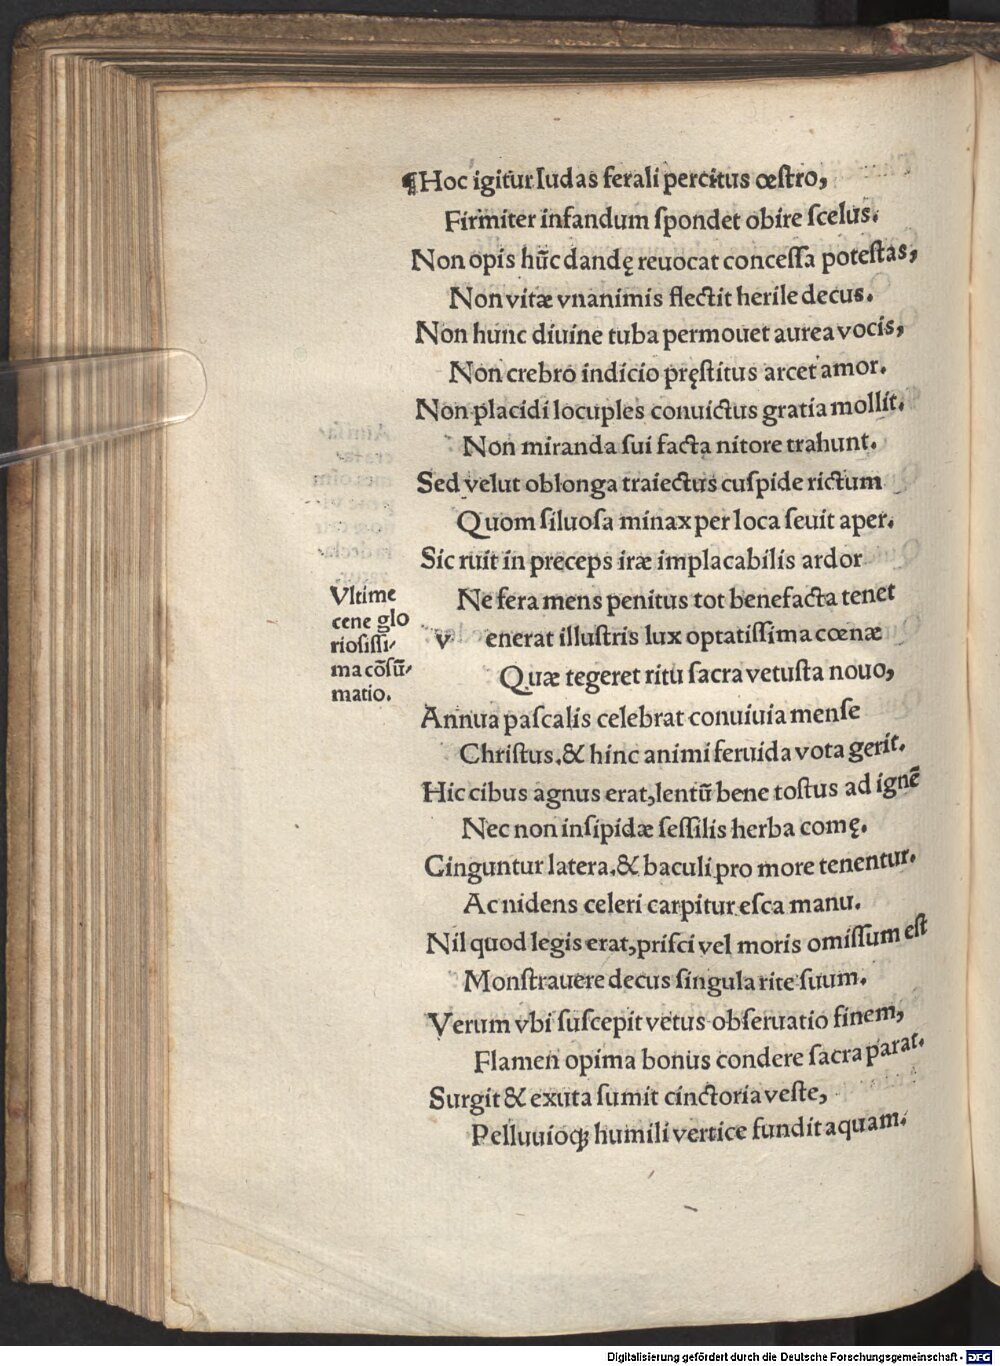 ¶Hoc igitur Iudas ferali percitus œſtro,
Firmiter infandum ſpondet obire ſcelus.
Non opis hūc dandę reuocat conceſſa poteſtas,
Non vitæ vnanimis flectit herile decus.
Non hunc diuine tuba permouet aurea vocis,
Non crebro indicio pręſtitus arcet amor.
Non placidi locuples conuictus gratia mollit.
Non miranda ſui facta nitore trahunt.
Sed velut oblonga traiectus cuſpide rictum
Quom ſiluoſa minax per loca ſeuit aper.
Sic ruit in preceps iræ implacabilis ardor
Ne fera mens penitus tot benefacta tenet
v enerat illuſtris lux optatiſſima cœnæ
Quæ tegeret ritu ſacra vetuſta nouo,
Annua paſcalis celebrat conuiuia menſe
Chriſtus.& hinc animi feruida vota gerit.
Hic cibus agnus erat,lentū bene toſtus ad ignē
Nec non inſipidæ ſeſſilis herba comę.
Cinguntur latera.& baculi pro more tenentur.
Ac nidens celeri carpitur eſca manu.
Nil quod legis erat,priſci vel moris omiſſum eſt
Monſtrauere decus ſingula rite ſuum.
Verum vbi ſuſcepit vetus obſeruatio finem,
Flamen opima bonus condere ſacra parat.
Surgit & exuta ſumit cinctoria veſte,
Pelluuioqꝫ humili vertice fundit aquam.
Vltime
cene glo
rioſiſſi-
ma cōſū-
matio.
Digitalisierung gefördert durch die Deutsche Forschungsgemeinschaft - DFG